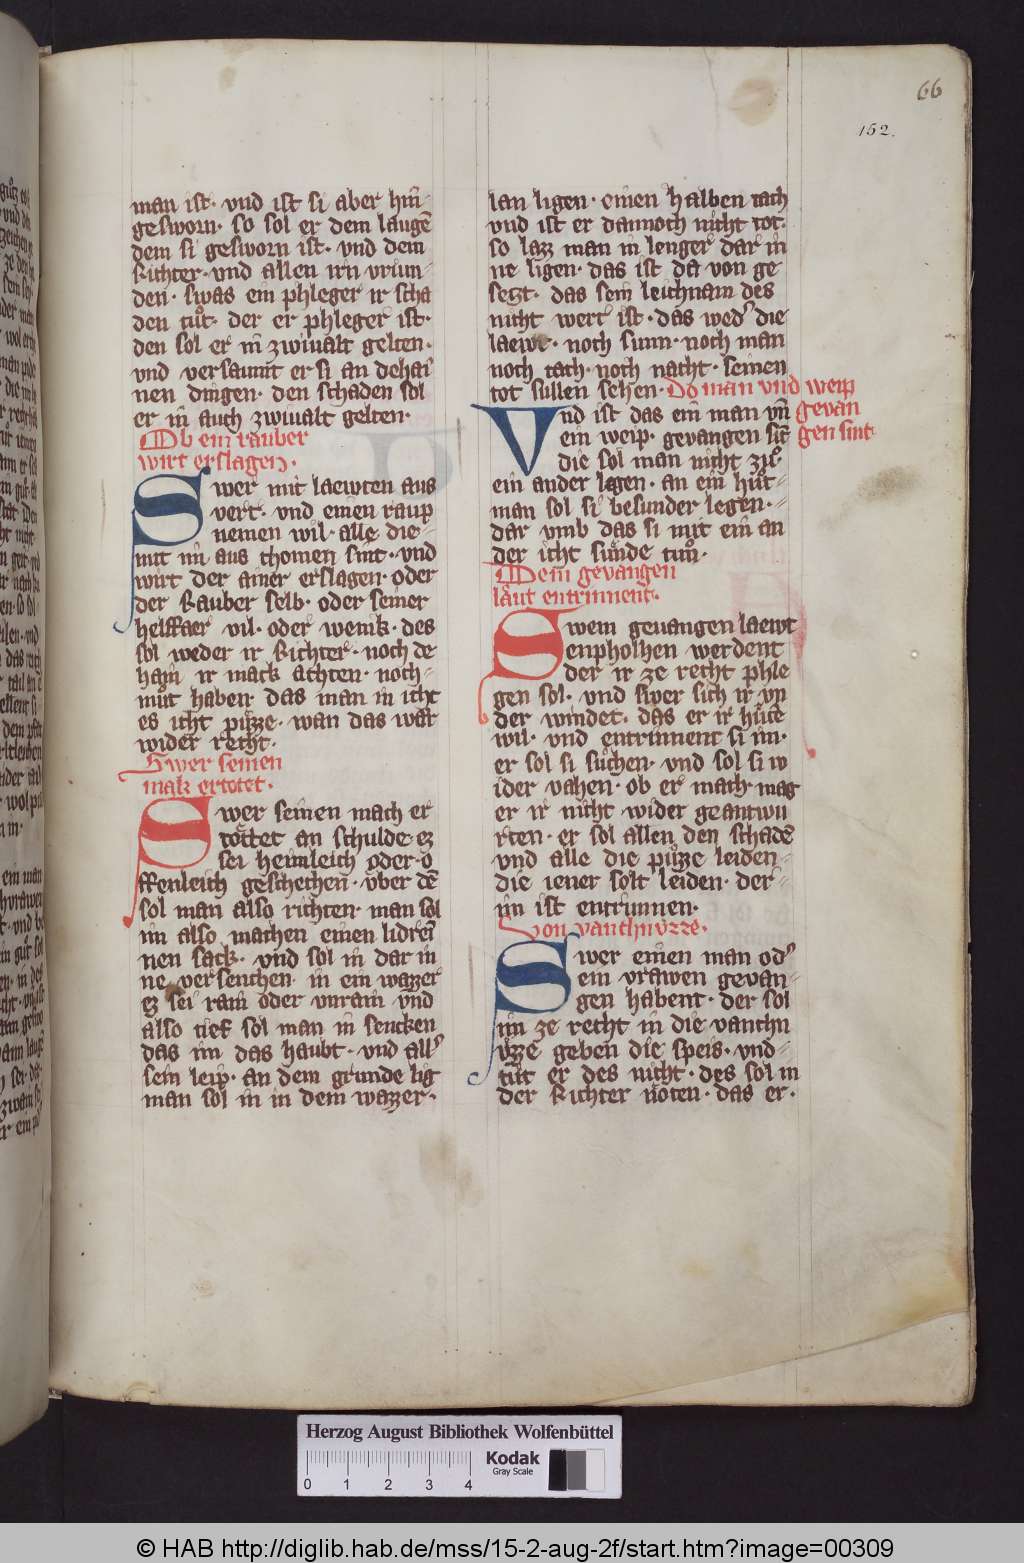 66
152.
man ist · vnd ist si aber hin̄
gesworn · so sol er dem laugē
dem si gesworn ist · vnd dem
Richter · vnd allen irn vriun-
den · swas ein phleger ir scha
den tuͦt · der er phleger ist ·
den sol er in zwiualt gelten ·
vnd versaumt er si an dehaī
nen dingen · den schaden sol
er in auch zwiualt gelten ·
Ob ein rauber
wirt erslagen ·
Swer mit laewten aus
vert · vnd einen raup
nemen wil · alle die-
mit im aus chomen sint · vnd
wirt der ainer erslagen · oder
der Rauber selb · oder seiner
helffaer vil · oder wenik · des
sol weder ir Richter · noch de
hain ir mack achten · noch-
muͤt haben das man in icht
es icht puͤzze · wan das waͤr
wider recht ·
Swer seinen
mak ertotet ·
Swer seinen mach er
toͤttet an schulde · ez
sei heimleich oder · o
ffenleich geschechen · vber dē
sol man also richten · man sol
im also machen einen lidreī
nen sack · vnd sol in dar in
ne versenchen · in ein wazzer
ez sei rain oder vnrain vnd
also tief sol man in sencken
das im das haubt · vnd all'
sein leip · an dem grunde lig
man sol in in dem wazzer ·
lan ligen · einen halben tach
vnd ist er dannoch nicht tot ·
so lazz man in lenger dar in
ne ligen · das ist da von ge
setzt · das sein leichnam des
nicht wert ist · das wed' die
laewt · noch sunn · noch man
noch tach · noch nacht · seinen
tot sullen sehen · Do man vnd weip
gevan
gen sint
Vnd ist das ein man vn̄
ein weip · gevangen sīt
die sol man nicht zuͦ
ein ander legen · an ein huͦt-
man sol si besunder legen ·
dar vmb das si mit ein an
der icht suͤnde tuͦn ·
Dem gevangen
laͤut entrinnent ·
Swem geuangen laewt
enpholhen werdent
der ir ze recht phle
gen sol · vnd swer sich ir vn
der windet · das er ir huͤtē
wil · vnd entrinnent si im ·
er sol si suͦchen · vnd sol si w
ider vahen · ob er mach · mag
er ir nicht wider geantwu
rten · er sol allen den schadē
vnd alle die puͤzze leiden-
die iener solt leiden · der-
im ist entrunnen ·
Von vanchnuzze ·
Swer einen man od'
ein vrawen gevan-
gen habent · der sol
im ze recht in die vanchn
uͤzze geben die speis · vnd-
tuͤt er des nicht · des sol in
der Richter noͤten · das er ·
Herzog August Bibliothek Wolfenbüttel
0 1 2 3 4
Kodak
Gray Scale
© HAB http://diglib.hab.de/mss/15-2-aug-2f/start.htm?image=00309